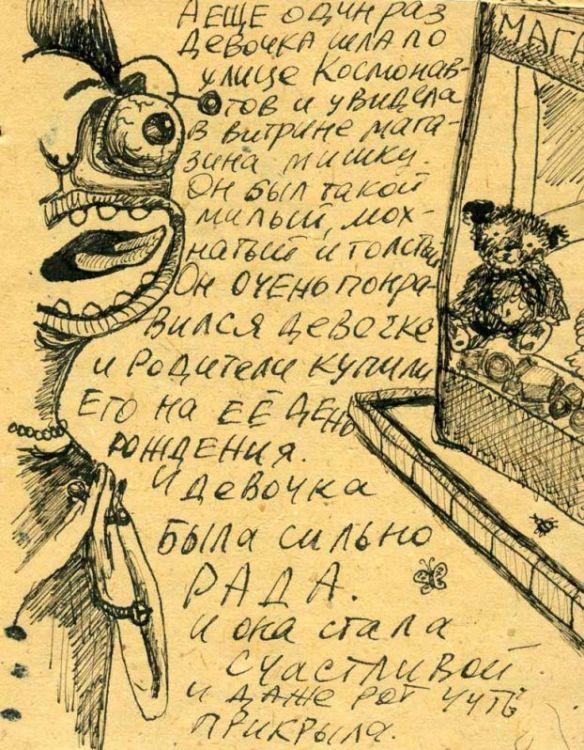 А ЕЩЕ ОДИН РАЗ
ДЕВОЧКА ШЛА ПО
УЛИЦЕ КОСМОНАВ-
ТОВ И УВИДЕЛА
В ВИТРИНЕ МАГА-
ЗИНА МИШКУ.
ОН БЫЛ ТАКОЙ
МИЛЫЙ, МОХ-
НАТЫЙ И ТОЛСТЫЙ
ОН ОЧЕНЬ ПОНРА-
ВИЛСЯ ДЕВОЧКЕ
И РОДИТЕЛИ КУПИЛИ
ЕГО НА ЕЁ ДЕНЬ
РОЖДЕНИЯ.
И ДЕВОЧКА
БЫЛА СИЛЬНО
РАДА.
И ОНА СТАЛА
СЧАСТЛИВОЙ
И ДАЖЕ РОТ ЧУТЬ
ПРИКРЫЛА.
МАГА